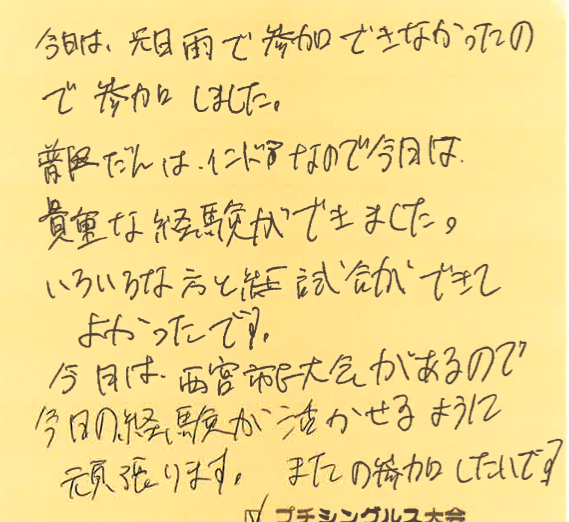 今日は、先日雨で参加できなかったの
で参加しました。
普段だんは、インドアなので今日は、
貴重な経験ができました。
いろいろな方と試合ができて
よかったです。
今月は、西宮市民大会があるので
今日の経験が活かせるように
頑張ります。またの参加したいです
プチシングルス大会